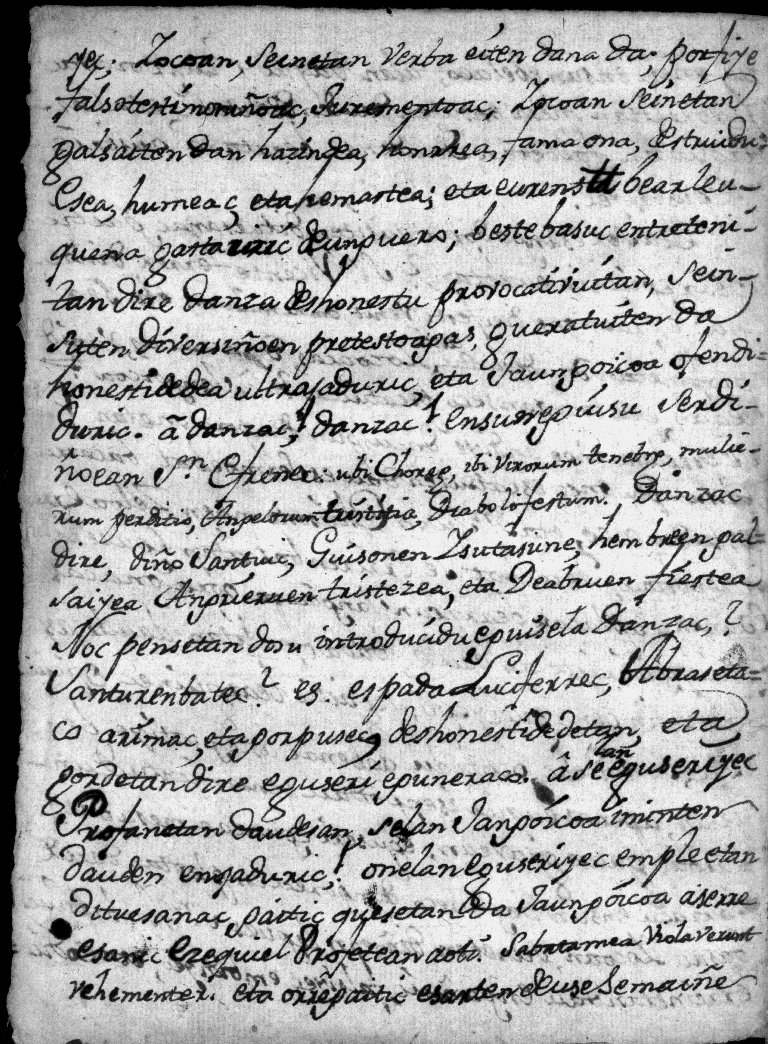 yez; Zocoan, Seinetan Verba eiten dana da; porfiye
falsotestimoniñoac, Juramentoac; Zocoan seinetan
galsaiten dan hacindea, honrrea, fama ona, destruidu
Esea, humeac, eta hemastea; eta euren bearleu-
quena gasta deunguero; beste basuc entreteni-
tan dire danza deshonestu provocativuetan, Sein-
Suten diversiñoen pretestoagas, queratuiten da
honestidadea ultrajaduric, eta Jaungoicoa ofendi-
duric. ã danzac! danzac! Ensun eguisu Serdi-
ñoean Sn. Efrenec. ubi Choreæ, ibi Virorum tenebræ, mulie-
rum perditio, Angelorum tristitia, Diaboli festum. Danzac
dire, diño Santuac, Guisonen Ilutasune, hembreen gal-
saiyea Angueruen tristezea, eta Deabruen fiestea
Noc pensetan dosu introducidu eguisela Danzac,?
Santurenbatec? ez. ezpada Luciferrec, Abraseta-
co arimac, eta gorpusec deshonestidadetan, eta
gordetan dire eguseri egunerac. ã selan eguseriyec
Profanetan daudesan, selan Jangoicoa iminten
dauden enojaduric,! onelan eguseriyec empleetan
dituesanac gaitic quesetan da Jaungoicoa aserre
esanic Ezequiel Profetean aoti. Sabatamea Violaverunt
vehementer. eta orregaitic esanten deuse Semaiñe